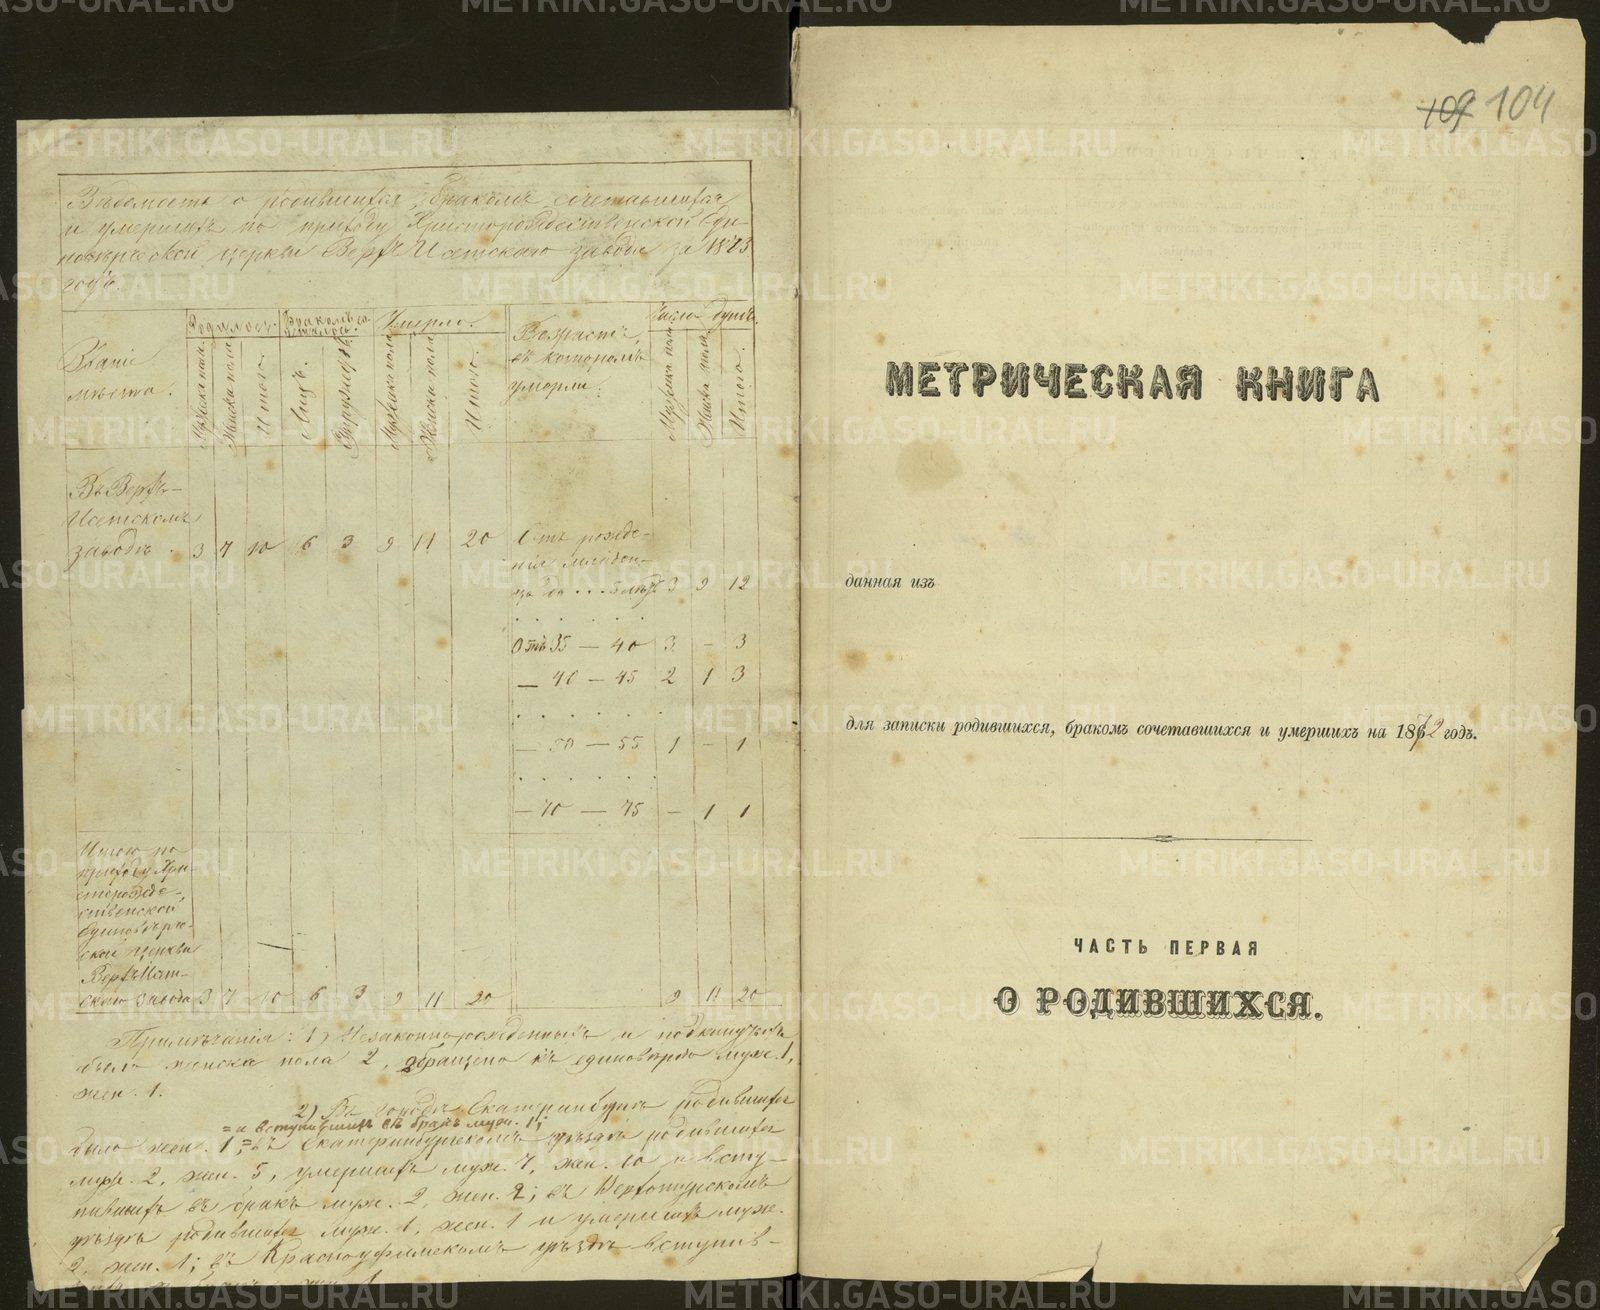 Вѣдомость о родившихся, бракомъ сочетавшихся
и умершихъ по приходу Христорождественской Еди-
новѣрческой церкви Верхъ Исетскаго завода за 1873
годъ.
Званіе мѣста.
Родилось.
Мужска пола.
Женска пола.
Итого.
Бракомъ со-
четалось.
Лицъ.
Супружествъ.
Умерло.
Мужска пола.
Женска пола.
Итого.
Возрастъ,
въ которомъ
умерли.
Число душъ.
Мужска пола.
Женска пола.
Итого.
Въ Верхъ-
Исетскомъ
заводѣ. 3 7 10 6 3 9 11 20
Отъ рожде-
нія младен-
ца до ... 5 лѣтъ 3 9 12
Отъ 35 — 40 3 - 3
— 40 — 45 2 1 3
— 50 — 55 1 - 1
— 70 — 75 - 1 1
Итого по
приходу Хри-
сторожде-
ственской
Единовѣрче-
ской церкви
Верхъ Исет-
скаго завода 3 7 10 6 3 9 11 20 9 11 20
Примѣчанія: 1) Незаконнорожденныхъ и подкинутыхъ
было женска пола 2, обращено къ единовѣрію муж. 1,
жен. 1.
2) Въ городѣ Екатеринбургѣ родившихся
= и вступившихъ въ бракъ муж. 1;
было жен. 1, = въ Екатеринбургскомъ уѣздѣ родившихся
муж. 2, жен. 5, умершихъ муж. 7, жен. 10 и всту-
пившихъ въ бракъ муж. 2, жен. 2; въ Верхотурскомъ
уѣздѣ родившихся муж. 1, жен. 1 и умершихъ муж.
2, жен. 1; въ Красноуфимскомъ уѣздѣ вступив-
109 104
МЕТРИЧЕСКАЯ КНИГА
данная изъ
для записки родившихся, бракомъ сочетавшихся и умершихъ на 1872 годъ.
ЧАСТЬ ПЕРВАЯ
О РОДИВШИХСЯ.
METRIKI.GASO-URAL.RU